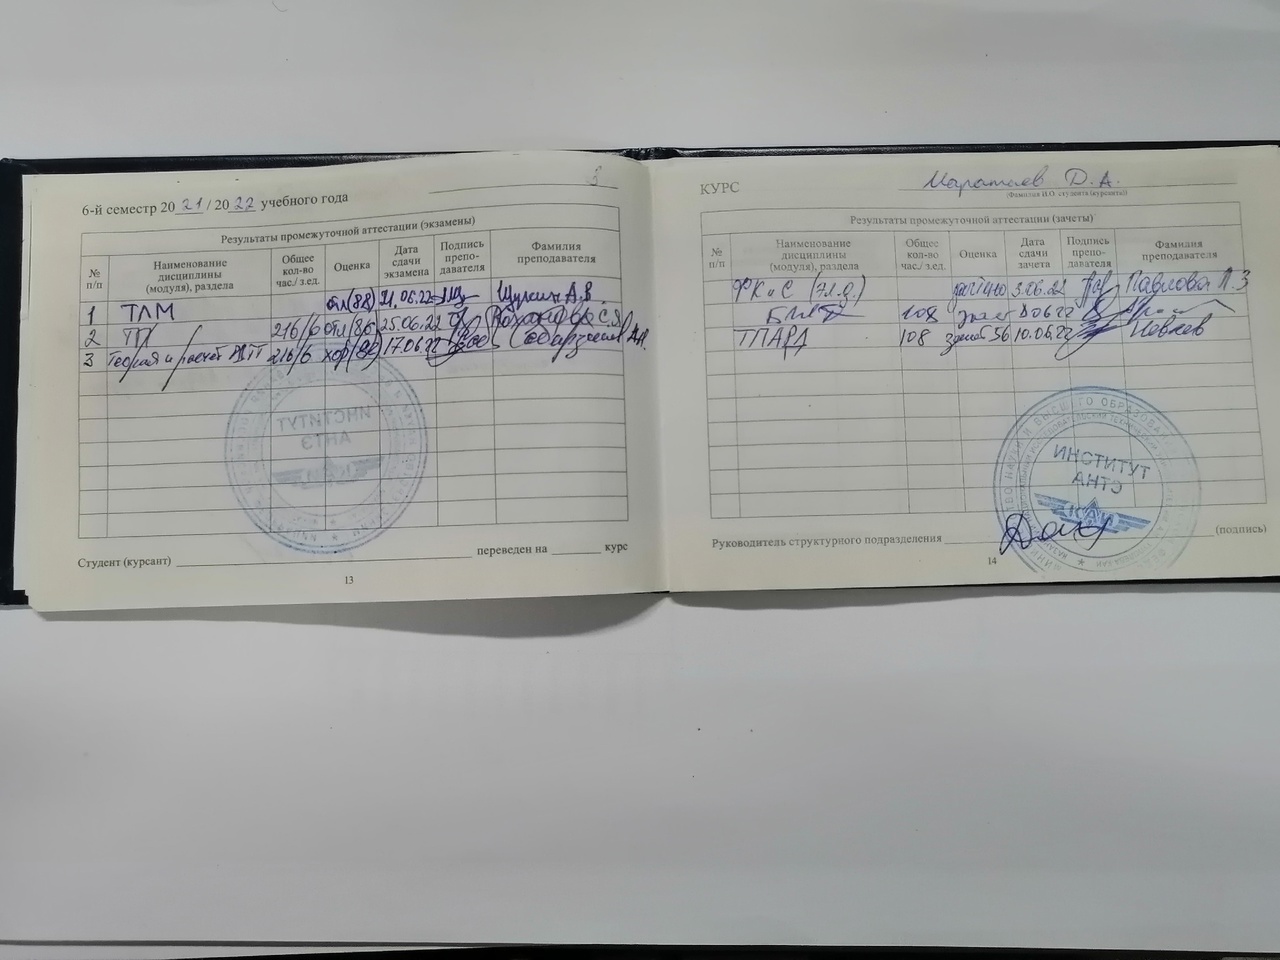 6-й семестр 20 21 / 20 22 учебного года
3
Результаты промежуточной аттестации (экзамены)
№ п/п
Наименование дисциплины (модуля), раздела
Общее кол-во час./ з.ед.
Оценка
Дата сдачи экзамена
Подпись препо-давателя
Фамилия преподавателя
1 ТЛМ отл(88) 21.06.22 А.В.
2 216/6 отл(86) 25.06.22 С.Я.
3 Теория и расчет 216/6 хор(82) 17.06.22
Студент (курсант) переведен на курс
13
КУРС Маратаев Д.А.
(Фамилия И.О. студента (курсанта))
Результаты промежуточной аттестации (зачеты)
№ п/п
Наименование дисциплины (модуля), раздела
Общее кол-во час./ з.ед.
Оценка
Дата сдачи зачета
Подпись препо-давателя
Фамилия преподавателя
ФКиС (эл.д.) 3.06.22 Павлова Л.З
108
ТПАРД 108 10.06.22
ИНСТИТУТ
АНТЭ
КАИ
Руководитель структурного подразделения (подпись)
14